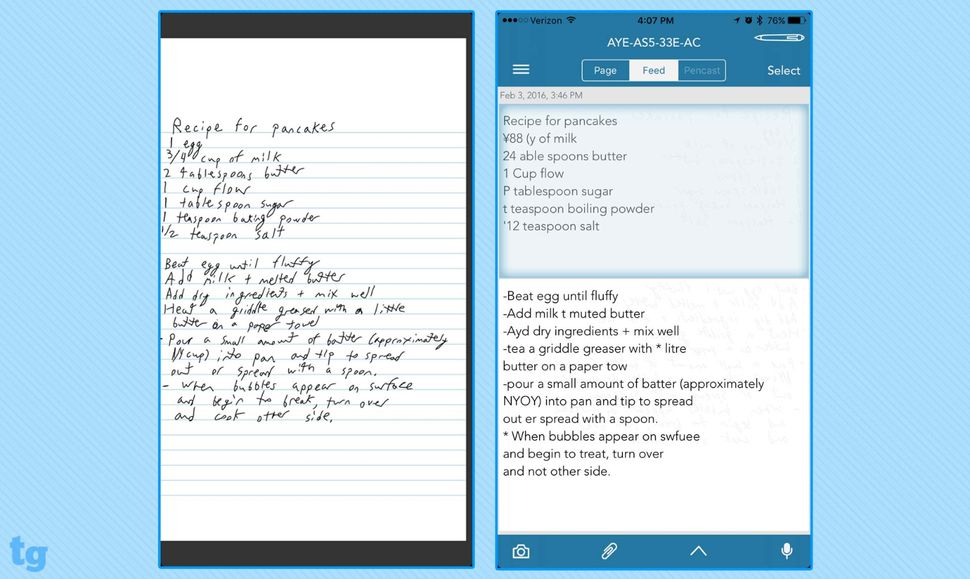 Recipe for pancakes
1 egg
3/4 cup of milk
2 tablespoons butter
1 cup flow
1 tablespoon sugar
1 teaspoon baking powder
1/2 teaspoon salt
Beat egg until fluffy
Add milk + melted butter
Add dry ingredients + mix well
Heat a griddle greased with a little
butter on a paper towel
- Pour a small amount of batter (approximately
1/4 cup) into pan and tip to spread
out or spread with a spoon.
- When bubbles appear on surface
and begin to break, turn over
and cook other side.
tg
Verizon 4:07 PM 76%
AYE-AS5-33E-AC
Page Feed Pencast Select
Feb 3, 2016, 3:46 PM
Recipe for pancakes
¥88 (y of milk
24 able spoons butter
1 Cup flow
P tablespoon sugar
t teaspoon boiling powder
'12 teaspoon salt
-Beat egg until fluffy
-Add milk t muted butter
-Ayd dry ingredients + mix well
-tea a griddle greaser with * litre
butter on a paper tow
-pour a small amount of batter (approximately
NYOY) into pan and tip to spread
out er spread with a spoon.
* When bubbles appear on swfuee
and begin to treat, turn over
and not other side.